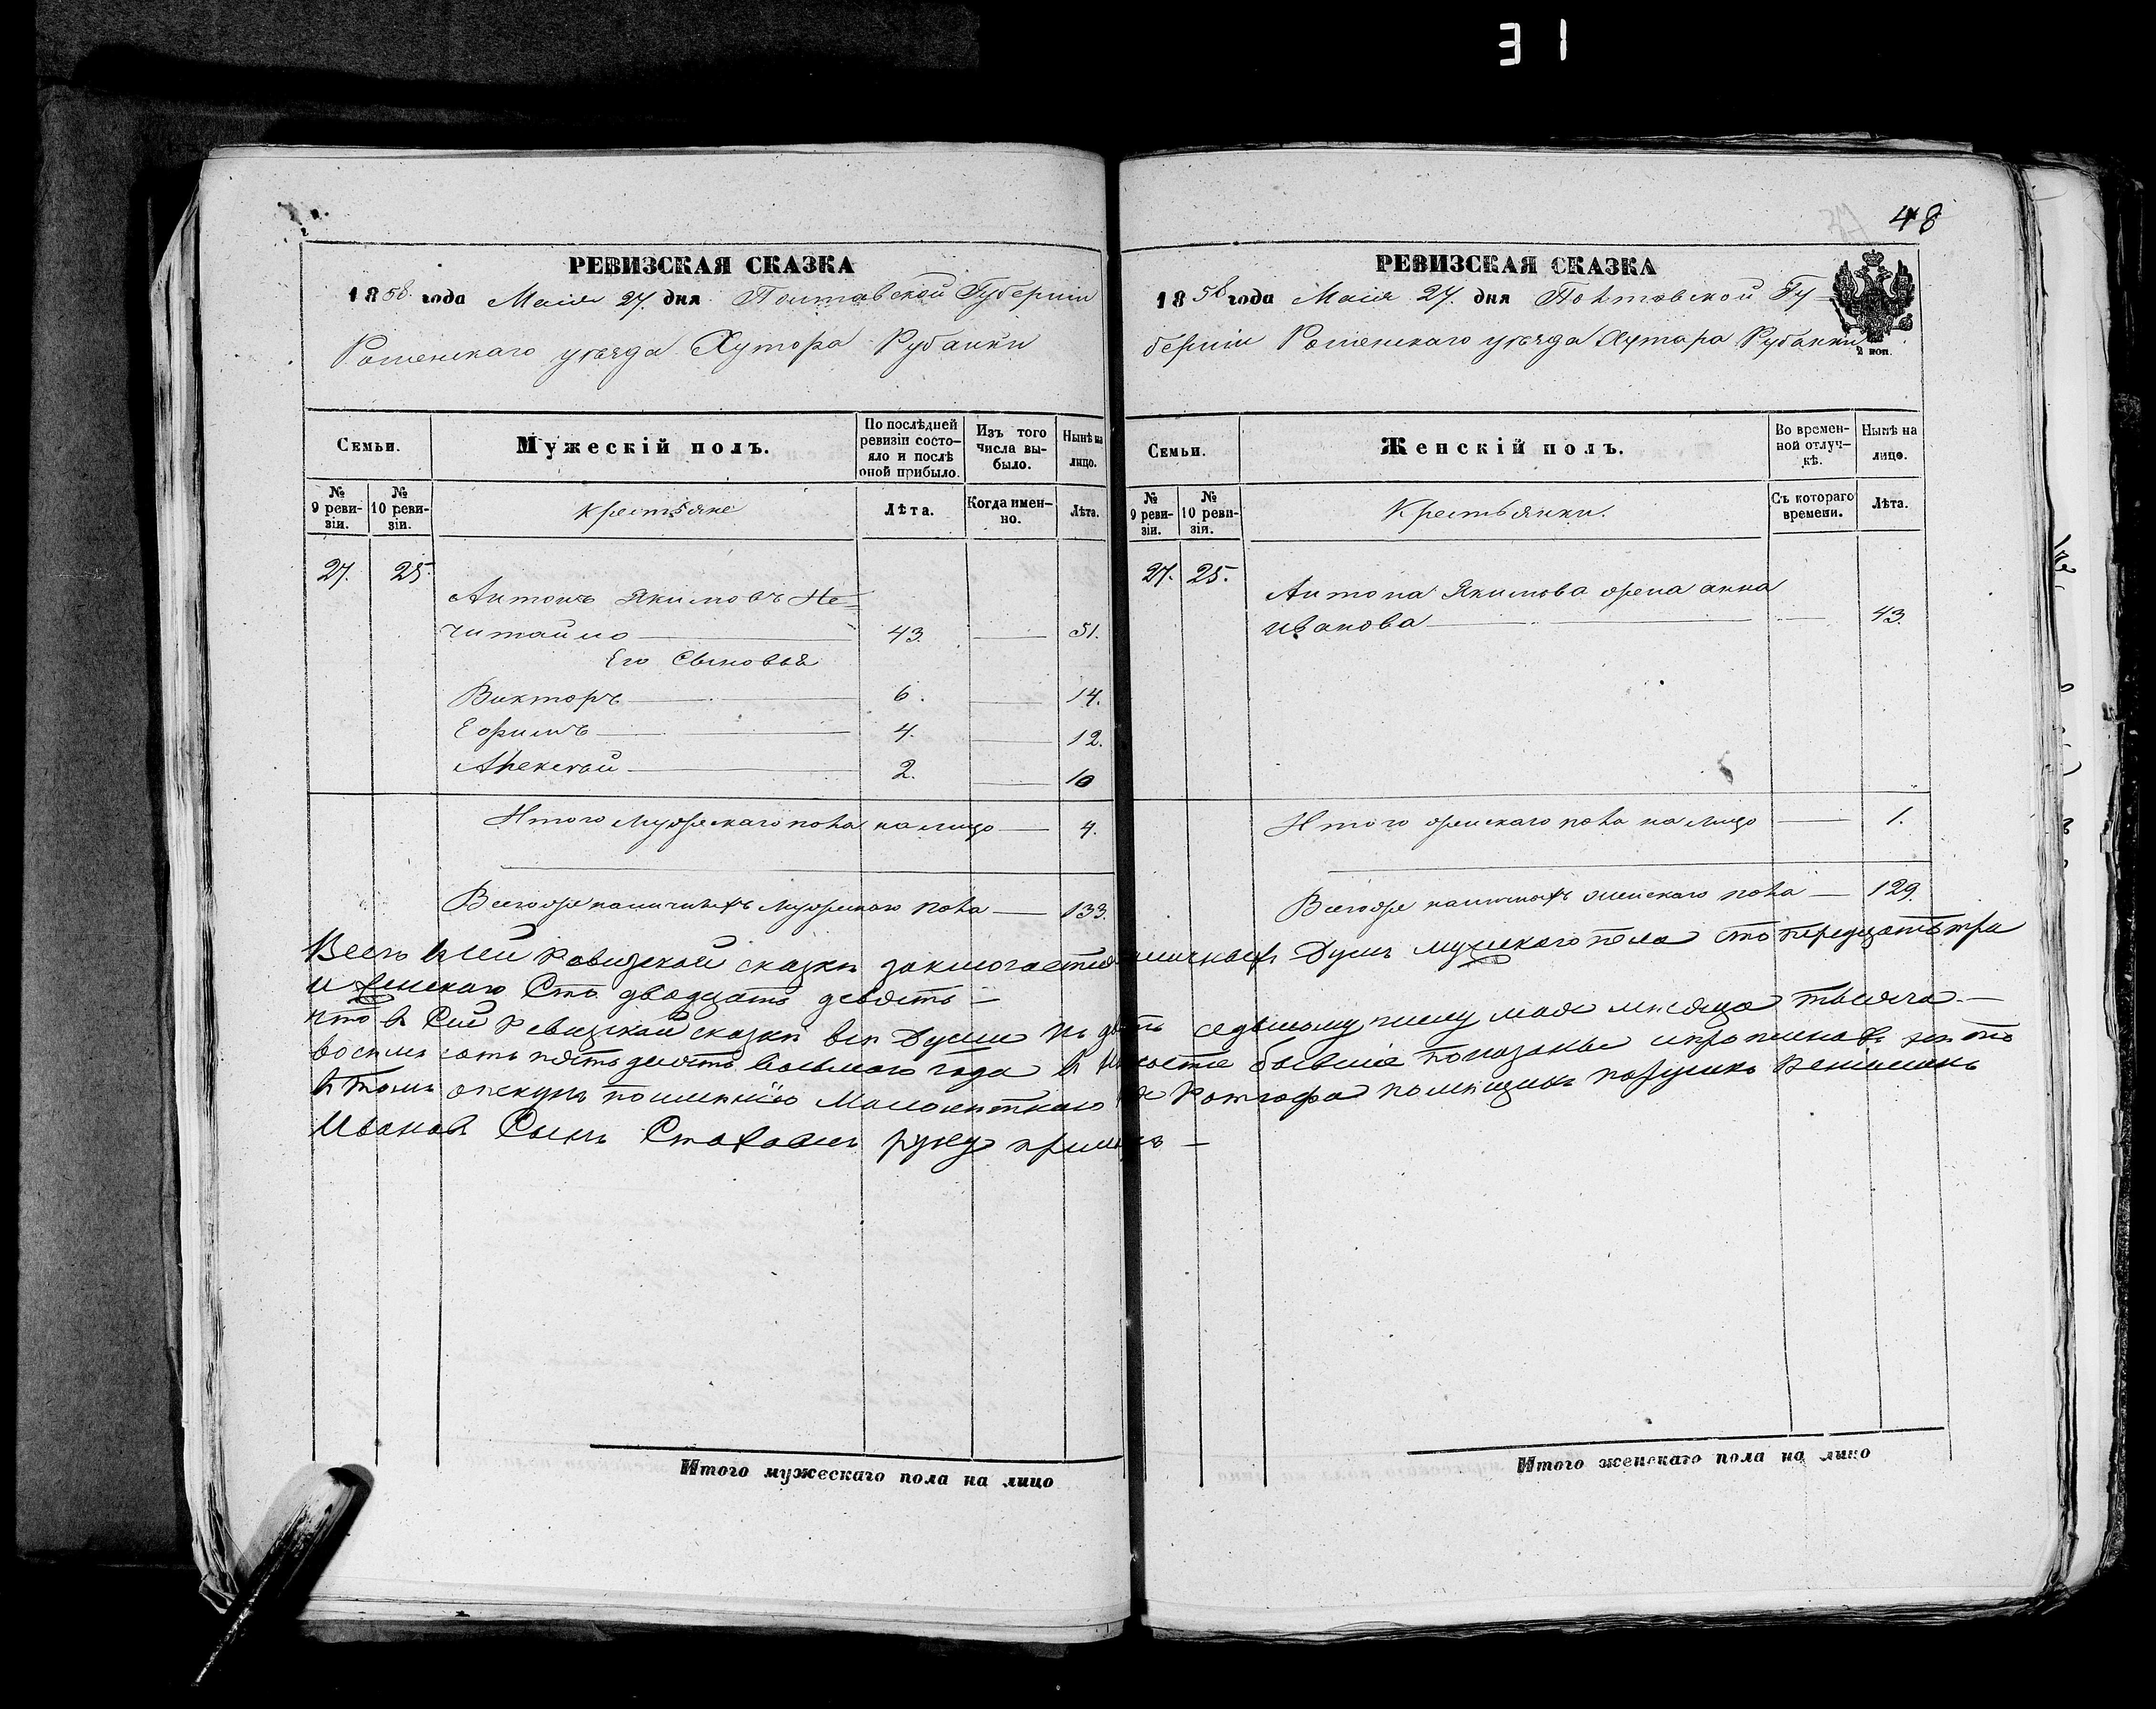 31
48
РЕВИЗСКАЯ СКАЗКА
1858 года Маія 27. дня Полтавской Губерніи
Роменскаго уѣзда Хутора Рубанки
Семьи.
Мужескій полъ.
По послѣдней ревизіи состояло и послѣ оной прибыло.
Изъ того числа выбыло.
Нынѣ на лицо.
№ 9 ревизіи.
№ 10 ревизіи.
Крестьяне
Лѣта.
Когда именно.
Лѣта.
27. 25.
Антонъ Якимовъ Не-
читайло 43. 51.
Его Сыновья
Викторъ 6. 14.
Ефимъ 4. 12.
Алексѣй 2. 10
Итого мужескаго пола на лицо 4.
Всего же наличныхъ мужескаго пола 133.
РЕВИЗСКАЯ СКАЗКА
1858 года Маія 27. дня Полтавской Гу-
берніи Роменскаго уѣзда Хутора Рубанки
2 коп.
Семьи.
Женскій полъ.
Во временной отлучкѣ.
Нынѣ на лицо.
№ 9 ревизіи.
№ 10 ревизіи.
Крестьянки.
Съ котораго времени.
Лѣта.
27. 25.
Антона Якимова жена анна
Иванова 43.
Итого женскаго пола на лицо 1.
Всего же наличныхъ женскаго пола 129.
Всего в сей Ревизской сказки заключается наличныхъ Душъ мужскаго пола сто тридцать три
и женскаго Сто двадцать девять
что в Сей Ревизской сказки все Души къ седьмому числу мая мѣсяца тысяча
восемь сотъ пятьдесятъ восьмого года бывшіе показаны
в томъ опекунъ помѣщикъ
Иванов Сынъ руку
Итого мужескаго пола на лицо
Итого женскаго пола на лицо